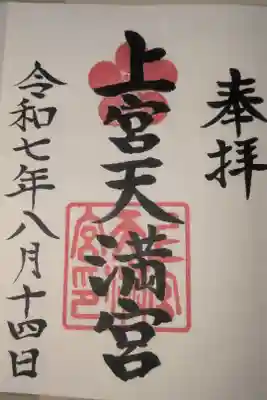 奉拝
上宮天満宮
令和七年八月十四日